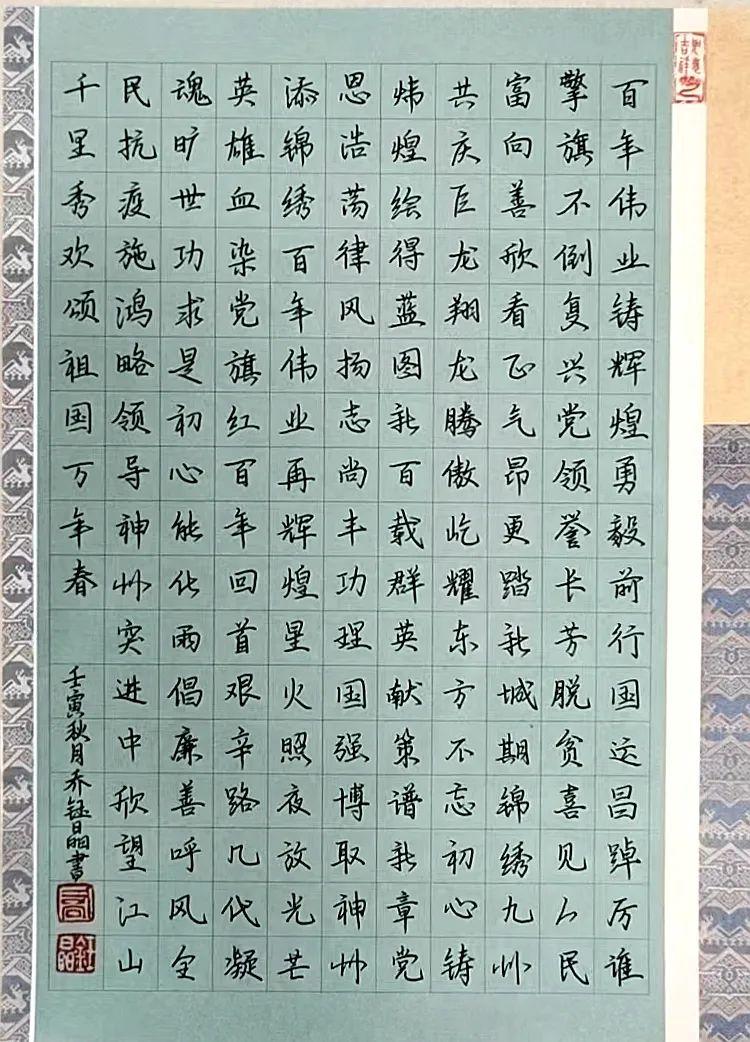 百年伟业铸辉煌勇毅前行国运昌踔厉谁
擎旗不倒复兴党领誉长芳脱贫喜见人民
富向善欣看正气昂更踏新城期锦绣九州
共庆巨龙翔龙腾傲屹耀东方不忘初心铸
炜煌绘得蓝图新百载群英献策谱新章党
恩浩荡律风扬志尚丰功理国强博取神州
添锦绣百年伟业再辉煌星火照夜放光芒
英雄血染党旗红百年回首艰辛路几代凝
魂旷世功求是初心能化雨倡廉善呼风全
民抗疫施鸿略领导神州突进中欣望江山
千里秀欢颂祖国万年春
壬寅秋月乔钰晶書